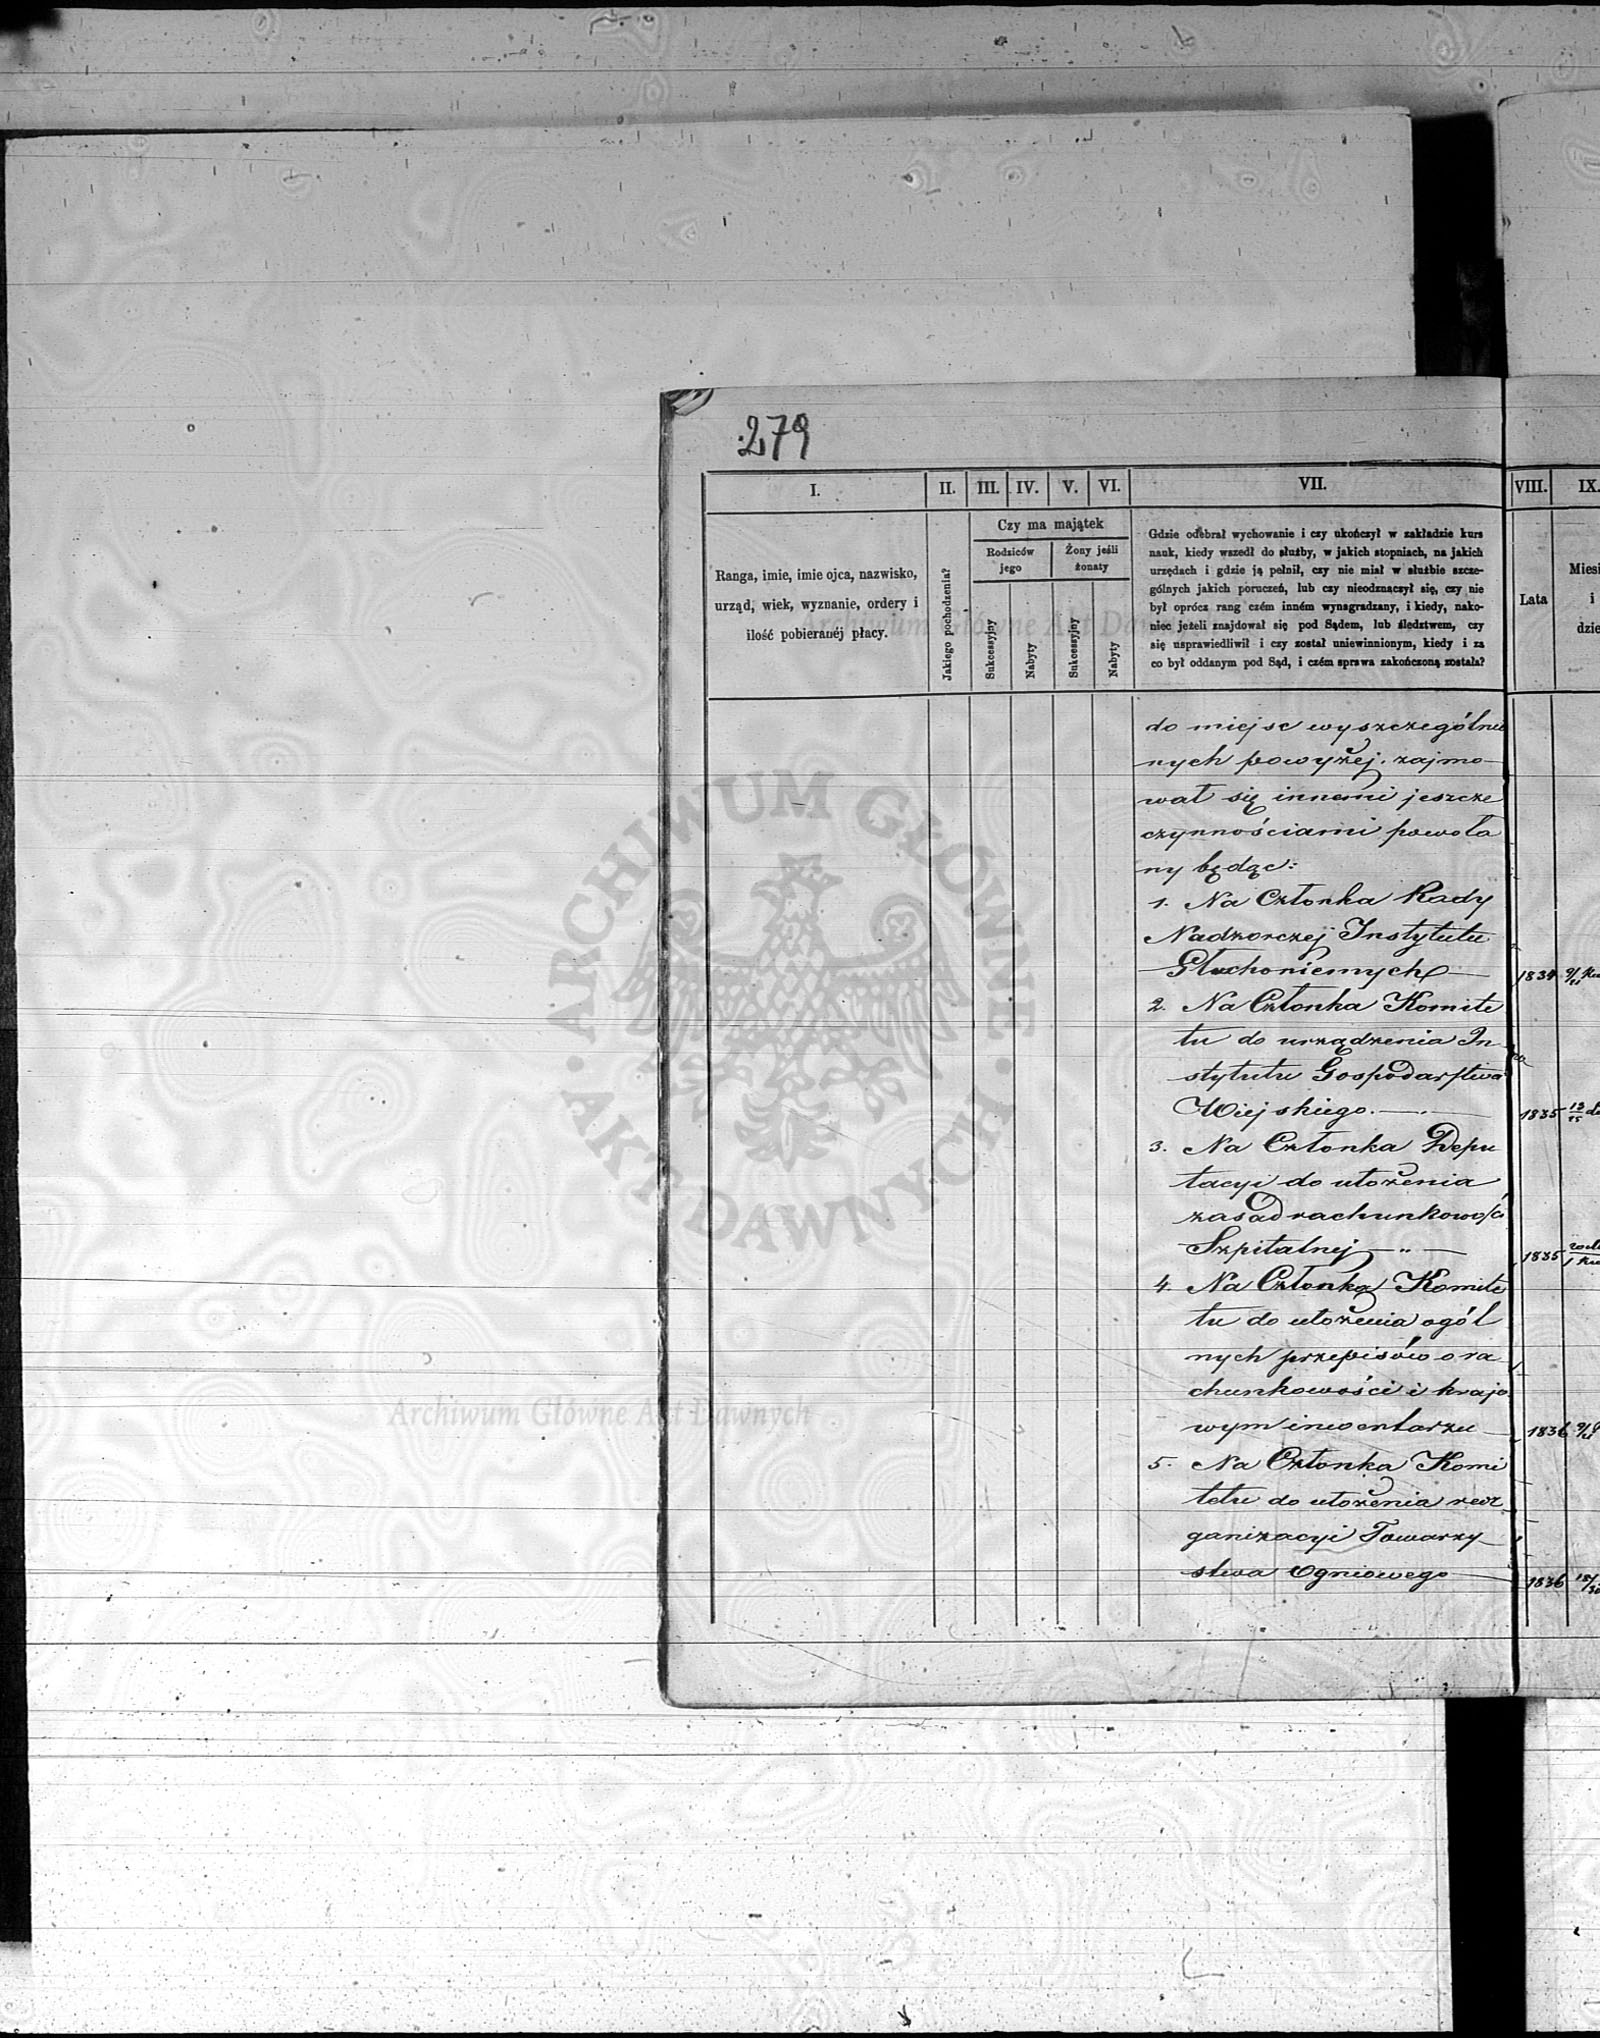 279
I. II. III. IV. V. VI. VII. VIII. IX.
Ranga, imie, imie ojca, nazwisko,
urząd, wiek, wyznanie, ordery i
ilość pobieranéj płacy.
Jakiego pochodzenia?
Czy ma majątek
Rodziców
jego
Żony jeśli
żonaty
Sukcessyjny
Nabyty
Sukcessyjny
Nabyty
Gdzie odebrał wychowanie i czy ukończył w zakładzie kurs
nauk, kiedy wszedł do służby, w jakich stopniach, na jakich
urzędach i gdzie ją pełnił, czy nie miał w służbie szcze-
gólnych jakich poruczeń, lub czy nieodznaczył się, czy nie
był oprócz rang czém inném wynagradzany, i kiedy, nako-
niec jeżeli znajdował się pod Sądem, lub śledztwem, czy
się usprawiedliwił i czy został uniewinnionym, kiedy i za
co był oddanym pod Sąd, i czém sprawa zakończoną została?
Lata
Miesi
i
dzie
do miejsc wyszczegółnio
nych powyżej, zajmo-
wał się innemi jeszcze
czynnościami powoła
ny będąc:
1. Na Członka Rady
Nadzorczej Instytutu
Głuchoniemych 1834
2. Na Członka Komite
tu do urządzenia In-
stytutu Gospodarstwa
Wiejskiego. 1835 13/25
3. Na Członka Depu
tacyi do ułożenia
zasad rachunkowości
Szpitalnej 1835
4. Na Członka Komite
tu do ułożenia ogól
nych przepisów o ra
chunkowości i krajo
wym inwentarzu 1836
5. Na Członka Komi
tetu do ułożenia reor
ganizacyi Towarzy-
stwa Ogniowego 1836
ARCHIWUM GŁÓWNE · AKT DAWNYCH ·
Archiwum Główne Akt Dawnych
Archiwum Główne Akt Dawnych